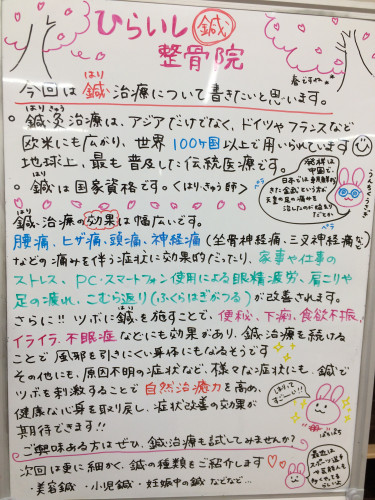 ひらいし鍼
整骨院
春ですね
はり
今回は鍼治療について書きたいと思います。
はり きゅう
。鍼灸治療は、アジアだけでなく、ドイツやフランスなど
欧米にも広がり、世界100ヶ国以上で用いられています
地球上、最も普及した伝統医療です。
はり
。鍼は国家資格です。〈はり・きゅう師〉
ペラ
ペラ
うんちくうさぎ
発祥は
中国で、
はり
鍼治療の効果は幅広いです。
腰痛、ヒザ痛、頭痛、神経痛(坐骨神経痛、三叉神経痛など)
などの痛みを伴う症状に効果的だったり、家事や仕事の
ストレス、PC・スマートフォン使用による眼精疲労、肩こりや
足の疲れ、こむら返り(ふくらはぎがつる)が改善されます。
はり
さらに!!ツボに鍼を施すことで、便秘、下痢、食欲不振、
イライラ、不眠症などにも効果があり、鍼治療を続ける
ことで風邪を引きにくい身体にもなるそうです
その他にも、原因不明の症状など、様々な症状にも、鍼で
ツボを刺激することで自然治癒力を高め、
健康な心身を取り戻し、症状改善の効果が
期待できます!!
はりって
すごーい!!
ご興味ある方はぜひ、鍼治療も試してみませんか?
次回は更に細かく、鍼の種類をご紹介します
・美容鍼 ・小児鍼 ・妊娠中の鍼 などなど…
最近は
スポーツ選手
や芸能人も